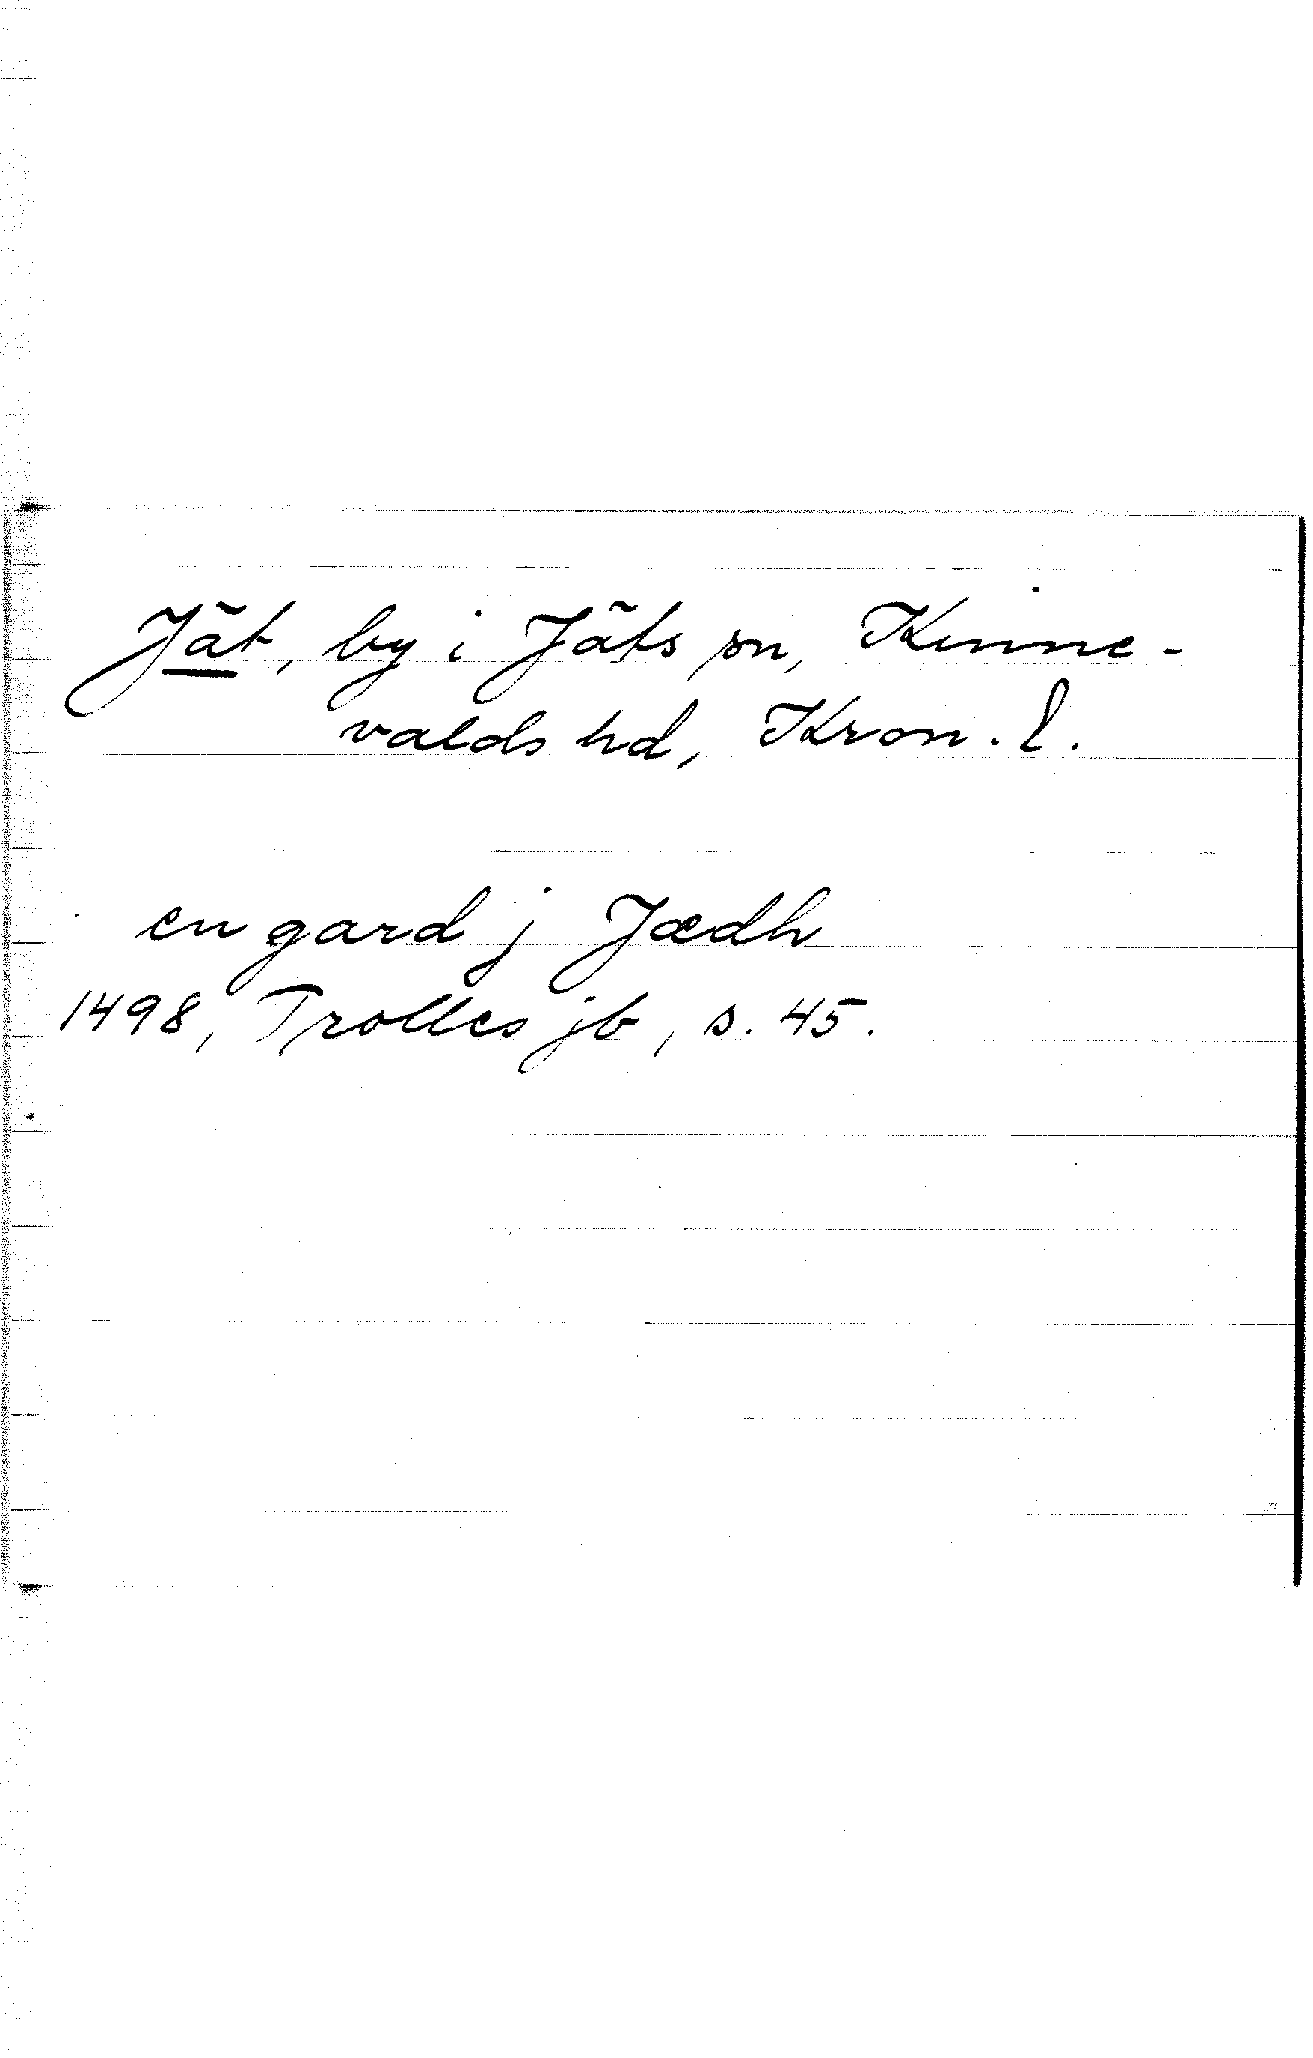 Jät, by i Jäts sn, Kinne-
valds hd, Kron. l.
en gard j Jædh
1498, Trolles jb, s. 45.